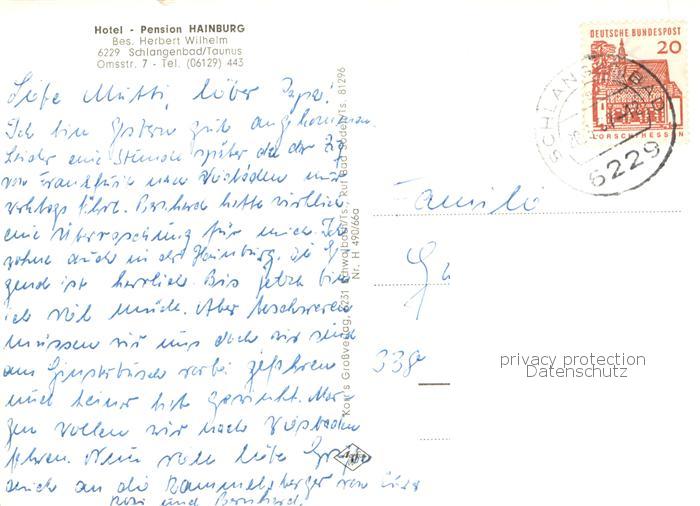 Hotel - Pension HAINBURG
Bes. Herbert Wilhelm
6229 Schlangenbad/Taunus
Omsstr. 7 - Tel. (06129) 443
Liebe Mutti, lieber Papa!
Ich bin gestern gut angekommen.
Leider eine Stunde später, da der Zug
von Frankfurt nach Wiesbaden nur
werktags fährt. Bernhard hatte wirklich
eine Überraschung für mich. Ich
wohne auch in der Hainburg. Die Ge-
gend ist herrlich. Bis jetzt bin
ich viel müde. Aber beschweren
müssen wir uns doch wir sind
am vorbei gefahren
und keiner hat gewinkt. Mor-
gen wollen wir nach Wiesbaden
fahren. Nun viele liebe Grüße
auch an die Rammelsberger von Eurer
Rosi und Bernhard.
Korr's Großverlag, 6231 Schwalbach/Ts., Ruf Bad Soden/Ts. 81296
Nr. H 490/66a
DEUTSCHE BUNDESPOST
20
LORSCH/HESSEN
SCHLANGENBAD
6229
Familie
338
privacy protection
Datenschutz